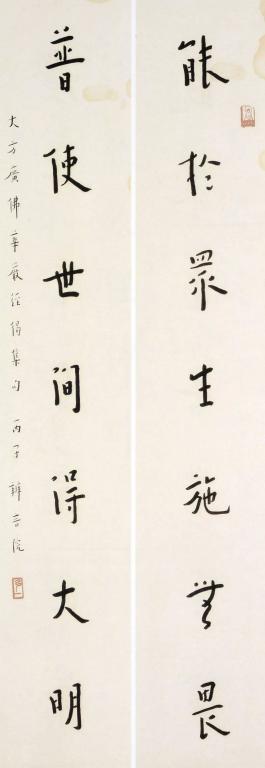 能於眾生施無畏
普使世間得大明
大方廣佛華嚴經偈集句 丙子 晉院